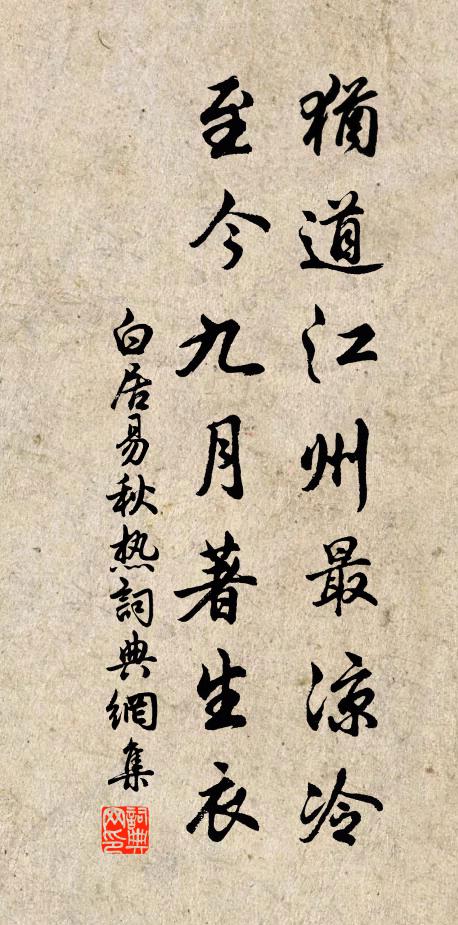 猶道江州最涼冷
至今九月著生衣
白居易秋热詞典網集
詞典网印